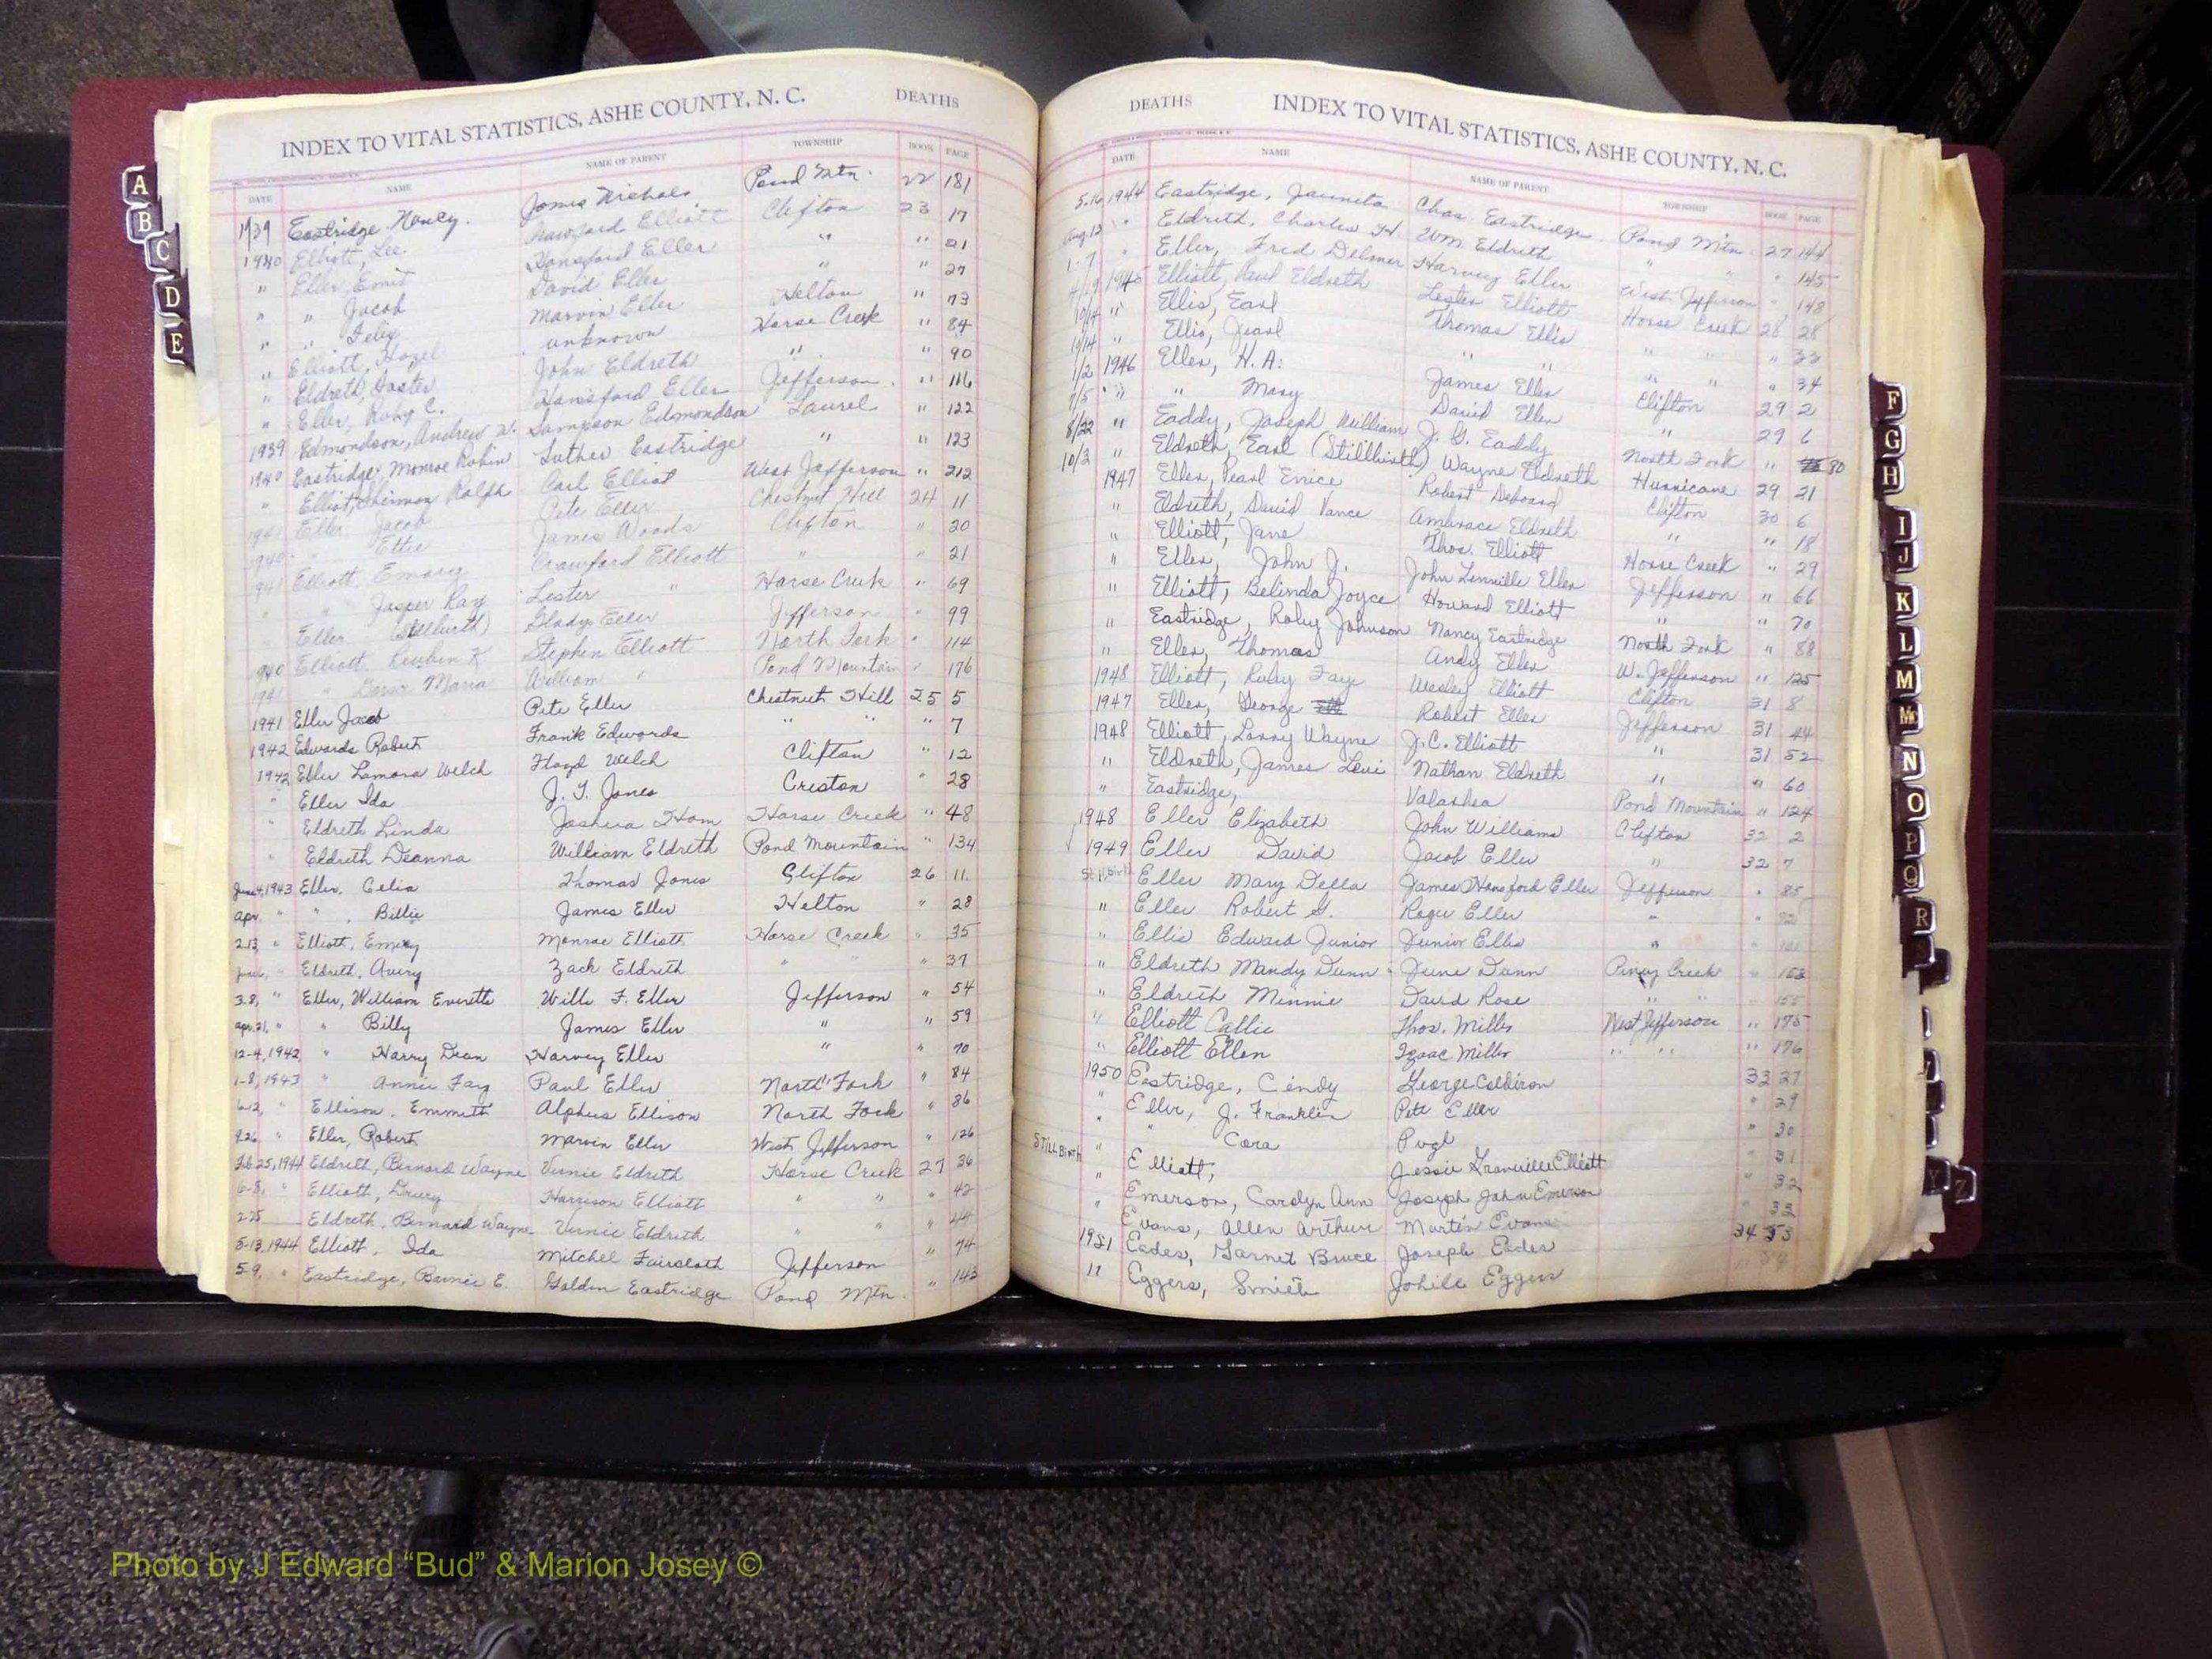 INDEX TO VITAL STATISTICS, ASHE COUNTY, N. C. DEATHS
DATE NAME NAME OF PARENT TOWNSHIP BOOK PAGE
1939 Eastridge Nancy. James Nichols Pond Mtn. 22 181
1940 Elliott, Lee Crawford Elliott Clifton 23 17
" Eller, Hansford Eller " " 21
" " Jacob David Eller " " 27
" " Felix Marvin Eller Helton " 73
" Elliott, Hazel unknown Horse Creek " 84
" Eldreth, John Eldreth " " 90
" Eller, Ruby C. Hansford Eller Jefferson " 116
1939 Edmondson, Andrew W. Sampson Edmondson Laurel " 122
1940 Eastridge, Monroe Robin Luther Eastridge " " 123
" Elliot, Sherman Ralph Carl Elliot West Jefferson " 212
1941 Eller Jacob Pete Eller Chestnut Hill 24 11
1940 " Ettie James Woods Clifton " 20
1941 Elliott, Emory Crawford Elliott " " 21
" " Jasper Ray Lester " Horse Creek " 69
" Eller (Stillbirth) Gladys Eller Jefferson " 99
1940 Elliott Reuben K Stephen Elliott North Fork " 114
1941 " Maria William " Pond Mountain " 176
1941 Eller Jacob Pete Eller Chestnut Hill 25 5
1942 Edwards Robert Frank Edwards " " " 7
1942 Eller Lamora Welch Floyd Welch Clifton " 12
" Eller Ida J. T. Jones Creston " 28
" Eldreth Linda Joshua Ham Horse Creek " 48
" Eldreth Deanna William Eldreth Pond Mountain " 134
June 4, 1943 Eller, Celia Thomas Jones Clifton 26 11.
Apr. " " , Billie James Eller Helton " 28
2-13, " Elliott, Emory Monroe Elliott Horse Creek " 35
" Eldreth, Avery Zack Eldreth " " " 37
3-8, " Eller, William Everette Will F. Eller Jefferson " 54
Apr. 21, " " Billy James Eller " " 59
12-4, 1942 " Harry Dean Harvey Eller " " 70
1-8, 1943 " Annie Fay Paul Eller North Fork " 84
6-12, " Ellison, Emmett Alphus Ellison North Fork " 86
9-26, " Eller, Robert Marvin Eller West Jefferson " 126
Feb. 25, 1944 Eldreth, Bernard Wayne Vernie Eldreth Horse Creek 27 36
6-3, " Elliott, Drury Harrison Elliott " " " 42
2-25 Eldreth, Bernard Wayne Vernie Eldreth " " " 44
5-13, 1944 Elliott, Ida Mitchel Faircloth Jefferson " 74
5-9, " Eastridge, Bernie E. Golden Eastridge Pond Mtn. " 143
DEATHS INDEX TO VITAL STATISTICS, ASHE COUNTY, N. C.
DATE NAME NAME OF PARENT TOWNSHIP BOOK PAGE
5-16 1944 Eastridge, Jaunita Chas. Eastridge Pond Mtn. 27 144
Aug. 12 " Eldreth, Charles H. Wm. Eldreth " " " 145
1-7 " Eller, Fred Delmer Harvey Eller West Jefferson " 148
4/19 1945 Elliott, Paul Eldreth Lester Elliott Horse Creek 28 28
10/14 " Ellis, Earl Thomas Ellis " " " 33
" Ellis, Pearl " " " " " 34
1/2 1946 Eller, H. A. James Eller Clifton 29 2
7/5 " " Mary David Eller " 29 6
8/22 " Eaddy, Joseph William J. G. Eaddy North Fork " 80
10/3 " Eldreth, Earl (Stillbirth) Wayne Eldreth Hurricane 29 21
1947 Eller, Pearl Robert Deboard Clifton 30 6
" Eldreth, David Vance Ambrace Eldreth " " 18
" Elliott, Jane Thos. Elliott Horse Creek " 29
" Eller, John J. John Eller Jefferson " 66
" Elliott, Belinda Joyce Howard Elliott " " 70
" Eastridge, Roby Johnson Nancy Eastridge North Fork " 88
" Eller, Thomas Andy Eller W. Jefferson " 125
1948 Elliott, Ruby Faye Wesley Elliott Clifton 31 8
1947 Eller, George Robert Eller Jefferson 31 44
1948 Elliott, Larry Wayne J. C. Elliott " 31 52
" Eldreth, James Levi Nathan Eldreth " " 60
" Eastridge, Valashea Pond Mountain " 124
1948 Eller Elizabeth John Williams Clifton 32 2
1949 Eller David Jacob Eller " 32 7
Stillbirth Eller Mary Della James Hansford Eller Jefferson " 85
" Eller Robert G. Roger Eller "
" Ellis Edward Junior Junior Ellis " " 101
" Eldreth Mandy Dunn June Dunn Piney Creek " 153
" Eldreth Minnie David Rose " " " 155
" Elliott Callie Thos. Miller West Jefferson " 175
" Elliott Ellen Izaac Miller " " " 176
1950 Eastridge, Cindy George 33 27
" Eller, J. Franklin Pete Eller " 29
" " Cora Pugh " 30
STILLBirth " Elliott, Jessie Granville Elliott " 31
" Emerson, Carolyn Ann Joseph John Emerson " 32
" Evans, Allen Arthur Martin Evans " 33
1951 Eades, Garnet Bruce Joseph Eades 34 53
11 Eggers, Smith Johile Eggers
A
B
C
D
E
F
G
H
I
J
K
L
M
Mc
N
O
P
Q
R
Y Z
VITAL STATISTICS
BIRTHS
1963
Photo by J Edward “Bud” & Marion Josey ©